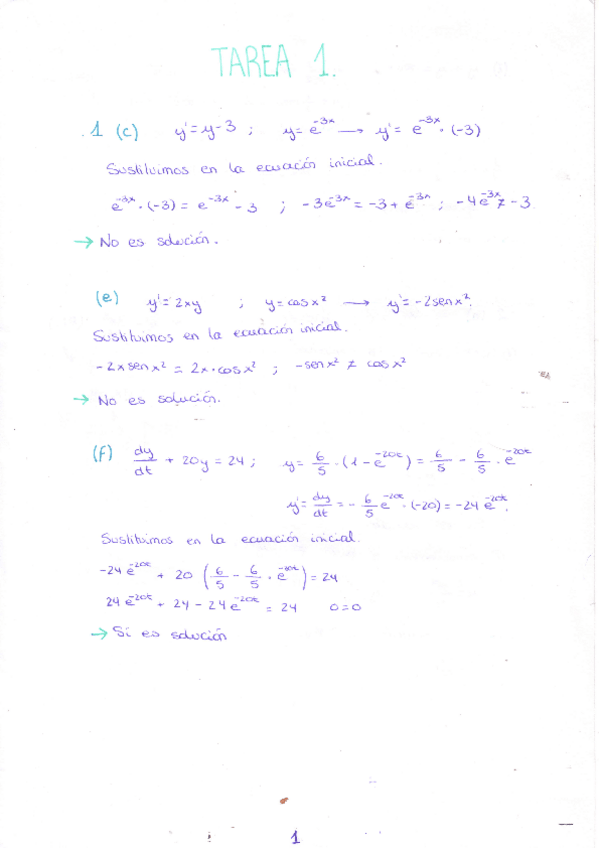 TAREA 1.
1 (c) y' = y-3 ; y = e^{-3x} → y' = e^{-3x} · (-3)
Sustituimos en la ecuación inicial.
e^{-3x} · (-3) = e^{-3x} - 3 ; -3e^{-3x} = -3 + e^{-3x} ; -4e^{-3x} ≠ -3
→ No es solución.
(e) y' = 2xy ; y = cos x² → y' = -2sen x².
Sustituimos en la ecuación inicial.
-2x sen x² = 2x · cos x² ; -sen x² ≠ cos x²
→ No es solución.
(f) dy/dt + 20y = 24 ; y = 6/5 · (1 - e^{-20t}) = 6/5 - 6/5 · e^{-20t}
y' = dy/dt = - 6/5 e^{-20t} · (-20) = -24 e^{-20t}.
Sustituimos en la ecuación inicial.
-24 e^{-20t} + 20 (6/5 - 6/5 · e^{-20t}) = 24
24 e^{-20t} + 24 - 24 e^{-20t} = 24 0=0
→ Si es solución
1